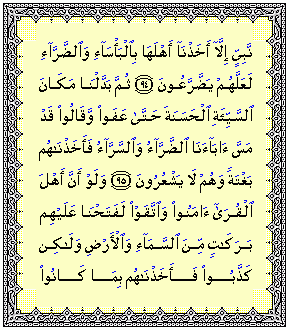 نَّبِيٍّ إِلَّآ أَخَذْنَآ أَهْلَهَا بِٱلْبَأْسَآءِ وَٱلضَّرَّآءِ
لَعَلَّهُمْ يَضَّرَّعُونَ ٩٤ ثُمَّ بَدَّلْنَا مَكَانَ
ٱلسَّيِّئَةِ ٱلْحَسَنَةَ حَتَّىٰ عَفَوا۟ وَّقَالُوا۟ قَدْ
مَسَّ ءَابَآءَنَا ٱلضَّرَّآءُ وَٱلسَّرَّآءُ فَأَخَذْنَٰهُم
بَغْتَةً وَهُمْ لَا يَشْعُرُونَ ٩٥ وَلَوْ أَنَّ أَهْلَ
ٱلْقُرَىٰٓ ءَامَنُوا۟ وَٱتَّقَوْا۟ لَفَتَحْنَا عَلَيْهِم
بَرَكَٰتٍ مِّنَ ٱلسَّمَآءِ وَٱلْأَرْضِ وَلَٰكِن
كَذَّبُوا۟ فَأَخَذْنَٰهُم بِمَا كَانُوا۟